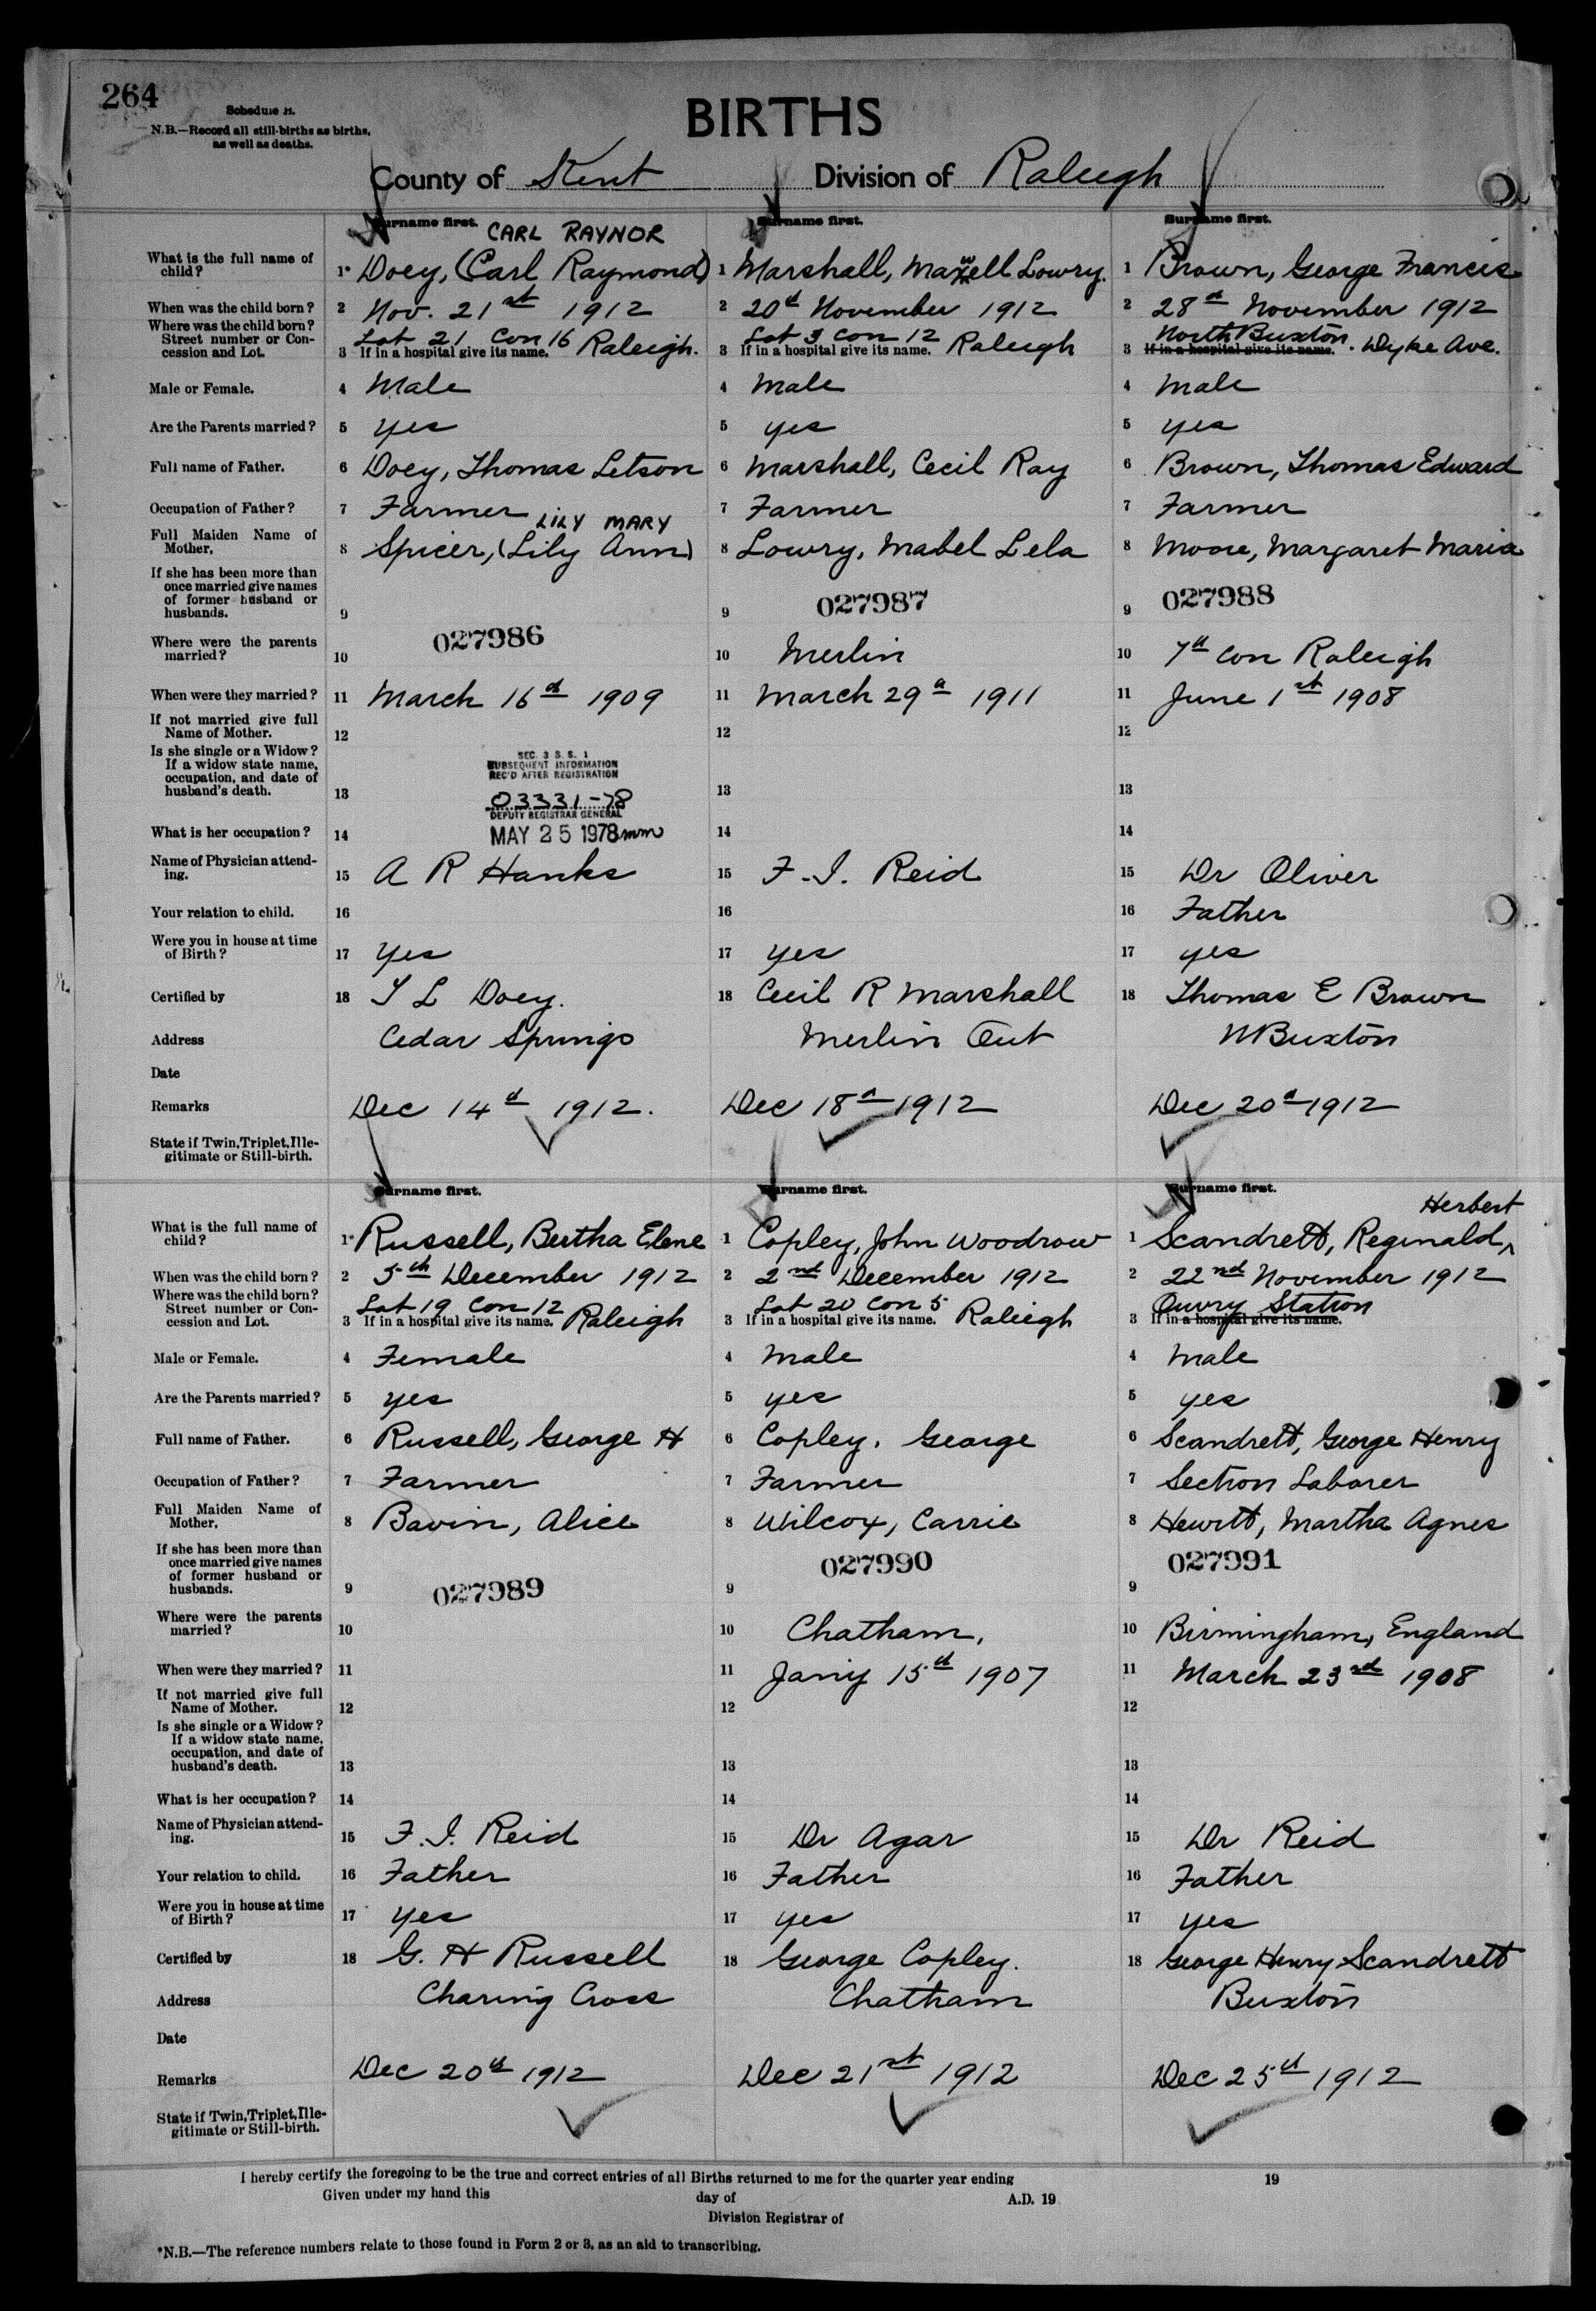 264
Schedule B.
N.B.—Record all still-births as births,
as well as deaths.
BIRTHS
County of Kent Division of Raleigh
Surname first. Surname first. Surname first.
CARL RAYNOR
What is the full name of child? 1* Doey, (Carl Raymond) 1 Marshall, Maxwell Lowry. 1 Brown, George Francis
When was the child born? 2 Nov. 21st 1912 2 20th November 1912 2 28th November 1912
Where was the child born? Street number or Concession and Lot. 3 If in a hospital give its name. Lot 21 Con 16 Raleigh. 3 If in a hospital give its name. Lot 3 Con 12 Raleigh 3 If in a hospital give its name. North Buxton. Dyke Ave.
Male or Female. 4 Male 4 Male 4 Male
Are the Parents married? 5 yes 5 yes 5 yes
Full name of Father. 6 Doey, Thomas Letson 6 Marshall, Cecil Ray 6 Brown, Thomas Edward
Occupation of Father? 7 Farmer 7 Farmer 7 Farmer
LILY MARY
Full Maiden Name of Mother, 8 Spicer, (Lily Ann) 8 Lowry, Mabel Lela 8 Moore, Margaret Maria
If she has been more than once married give names of former husband or husbands. 9 9 027987 9 027988
027986
Where were the parents married? 10 10 Merlin 10 7th con Raleigh
When were they married? 11 March 16th 1909 11 March 29th 1911 11 June 1st 1908
If not married give full Name of Mother. 12 12 12
Is she single or a Widow? If a widow state name, occupation, and date of husband's death. 13 13 13
SEC. 3 S. S. 1
SUBSEQUENT INFORMATION
REC'D AFTER REGISTRATION
03331-78
DEPUTY REGISTRAR GENERAL
MAY 25 1978 mm
What is her occupation? 14 14 14
Name of Physician attending. 15 A R Hanks 15 F. I. Reid 15 Dr Oliver
Your relation to child. 16 16 16 Father
Were you in house at time of Birth? 17 yes 17 yes 17 yes
Certified by 18 T L Doey. 18 Cecil R Marshall 18 Thomas E Brown
Address Cedar Springs Merlin Ont N Buxton
Date
Remarks Dec 14th 1912. Dec 18th 1912 Dec 20th 1912
State if Twin, Triplet, Illegitimate or Still-birth.
Surname first. Surname first. Surname first.
Herbert
What is the full name of child? 1* Russell, Bertha Elene 1 Copley, John Woodrow 1 Scandrett, Reginald
When was the child born? 2 5th December 1912 2 2nd December 1912 2 22nd November 1912
Where was the child born? Street number or Concession and Lot. 3 If in a hospital give its name. Lot 19 Con 12 Raleigh 3 If in a hospital give its name. Lot 20 Con 5 Raleigh 3 If in a hospital give its name. Ouvry Station
Male or Female. 4 Female 4 Male 4 Male
Are the Parents married? 5 yes 5 yes 5 yes
Full name of Father. 6 Russell, George H 6 Copley. George 6 Scandrett, George Henry
Occupation of Father? 7 Farmer 7 Farmer 7 Section Laborer
Full Maiden Name of Mother, 8 Bavin, Alice 8 Wilcox, Carrie 8 Hewitt, Martha Agnes
If she has been more than once married give names of former husband or husbands. 9 027989 9 027990 9 027991
Where were the parents married? 10 10 Chatham, 10 Birmingham, England
When were they married? 11 11 Jany 15th 1907 11 March 23rd 1908
If not married give full Name of Mother. 12 12 12
Is she single or a Widow? If a widow state name, occupation, and date of husband's death. 13 13 13
What is her occupation? 14 14 14
Name of Physician attending. 15 F. I. Reid 15 Dr Agar 15 Dr Reid
Your relation to child. 16 Father 16 Father 16 Father
Were you in house at time of Birth? 17 yes 17 yes 17 yes
Certified by 18 G. H Russell 18 George Copley. 18 George Henry Scandrett
Address Charing Cross Chatham Buxton
Date
Remarks Dec 20th 1912 Dec 21st 1912 Dec 25th 1912
State if Twin, Triplet, Illegitimate or Still-birth.
I hereby certify the foregoing to be the true and correct entries of all Births returned to me for the quarter year ending 19
Given under my hand this day of A.D. 19
Division Registrar of
*N.B.—The reference numbers relate to those found in Form 2 or 3, as an aid to transcribing.